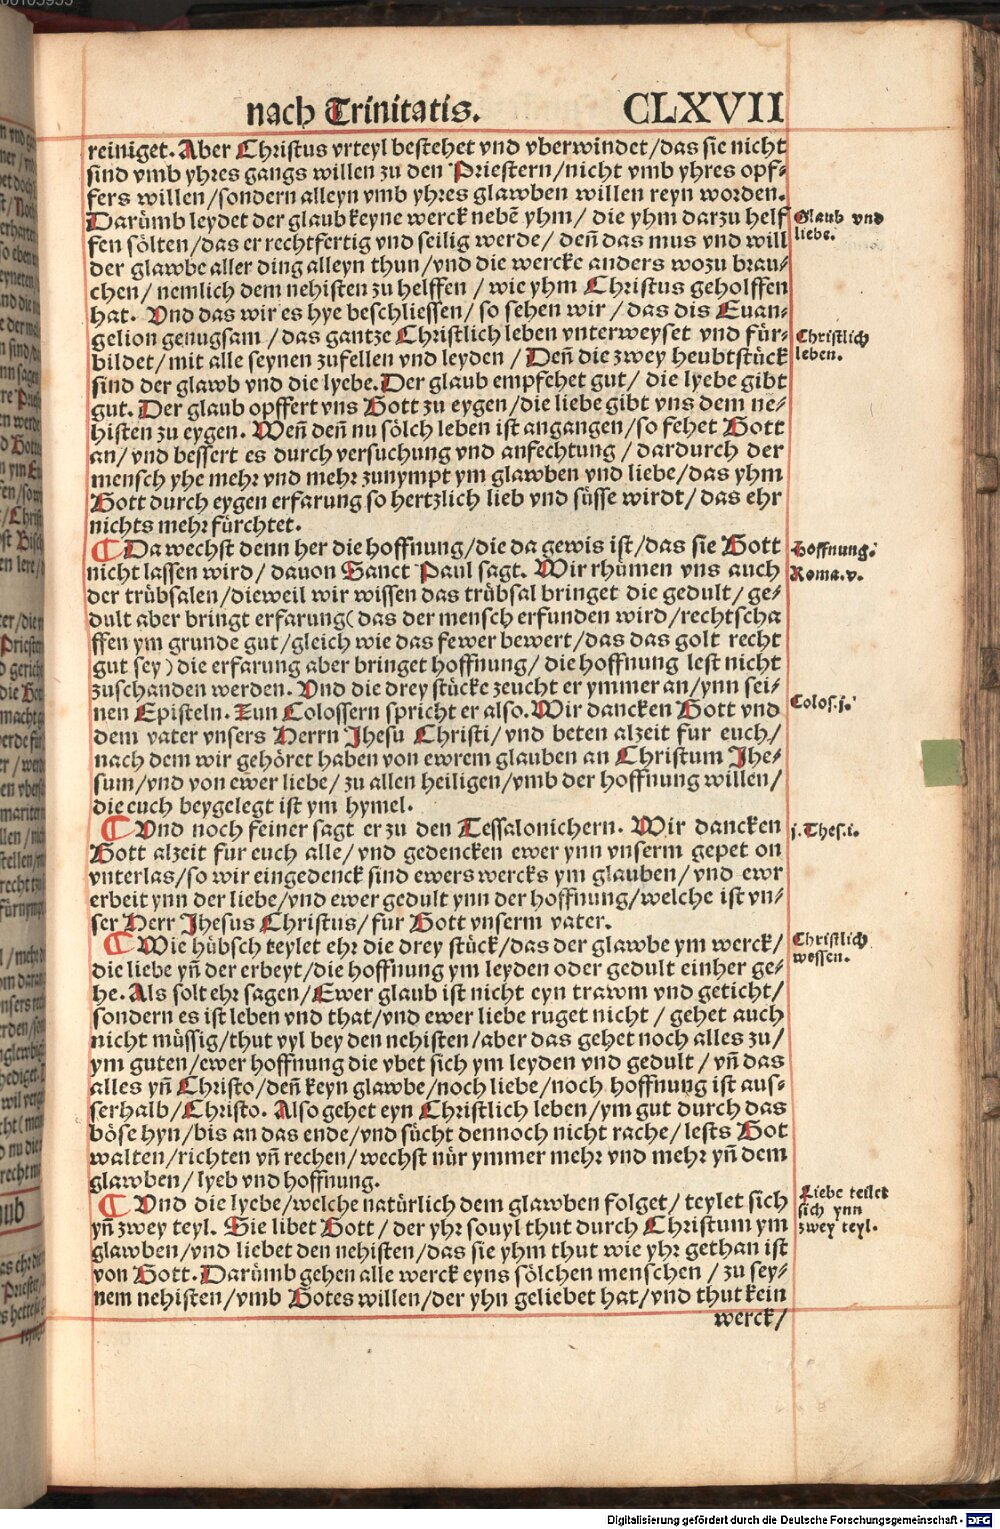 nach Trinitatis. CLXVII
reiniget. Aber Christus vrteyl bestehet vnd vberwindet/das sie nicht
sind vmb yhres gangs willen zu den Priestern/nicht vmb yhres opf-
fers willen/sondern alleyn vmb yhres glawben willen reyn worden.
Darümb leydet der glaub keyne werck nebē yhm/ die yhm darzu helf
fen sölten/das er rechtfertig vnd seilig werde/ deñ das mus vnd will
der glawbe aller ding alleyn thun/vnd die wercke anders wozu brau-
chen/ nemlich dem nehisten zu helffen / wie yhm Christus geholffen
hat. Vnd das wir es hye beschliessen/ so sehen wir / das dis Euan-
gelion genugsam / das gantze Christlich leben vnterweyset vnd für-
bildet/ mit alle seynen zufellen vnd leyden / Deñ die zwey heubtstück
sind der glawb vnd die lyebe. Der glaub empfehet gut/ die lyebe gibt
gut. Der glaub opffert vns Gott zu eygen/die liebe gibt vns dem ne-
histen zu eygen. Weñ deñ nu sölch leben ist angangen/so fehet Gott
an/ vnd bessert es durch versuchung vnd anfechtung / dardurch der
mensch yhe mehr vnd mehr zunympt ym glawben vnd liebe/das yhm
Gott durch eygen erfarung so hertzlich lieb vnd süsse wirdt/ das ehr
nichts mehr fürchtet.
Glaub vnd
liebe.
Christlich
leben.
¶ Da wechst denn her die hoffnung/die da gewis ist/das sie Gott
nicht lassen wird/ dauon Sanct Paul sagt. Wir rhümen vns auch
der trübsalen/dieweil wir wissen das trübsal bringet die gedult/ ge-
dult aber bringt erfarung( das der mensch erfunden wird/rechtscha
ffen ym grunde gut/gleich wie das fewer bewert/das das golt recht
gut sey ) die erfarung aber bringet hoffnung/ die hoffnung lest nicht
zuschanden werden. Vnd die drey stücke zeucht er ymmer an/ynn sei-
nen Episteln. Zun Colossern spricht er also. Wir dancken Gott vnd
dem vater vnsers Herrn Jhesu Christi/ vnd beten alzeit fur euch/
nach dem wir gehöret haben von ewrem glauben an Christum Jhe-
sum/vnd von ewer liebe/ zu allen heiligen/vmb der hoffnung willen/
die euch beygelegt ist ym hymel.
Hoffnung.
Roma. v.
Colos. j.
¶ Vnd noch feiner sagt er zu den Tessalonichern. Wir dancken
Gott alzeit fur euch alle/ vnd gedencken ewer ynn vnserm gepet on
vnterlas/so wir eingedenck sind ewers wercks ym glauben/ vnd ewr
erbeit ynn der liebe/vnd ewer gedult ynn der hoffnung/welche ist vn-
ser Herr Jhesus Christus/ fur Gott vnserm vater.
j. Thes. i.
¶ Wie hübsch teylet ehr die drey stück/das der glawbe ym werck/
die liebe yñ der erbeyt/die hoffnung ym leyden oder gedult einher ge-
he. Als solt ehr sagen/ Ewer glaub ist nicht eyn trawm vnd geticht/
sondern es ist leben vnd that/vnd ewer liebe ruget nicht / gehet auch
nicht müssig/thut vyl bey den nehisten/aber das gehet noch alles zu/
ym guten/ewer hoffnung die vbet sich ym leyden vnd gedult / vñ das
alles yñ Christo/deñ keyn glawbe/noch liebe/noch hoffnung ist aus-
serhalb/Christo. Also gehet eyn Christlich leben/ym gut durch das
böse hyn/bis an das ende/vnd sücht dennoch nicht rache/ lests Got
walten/richten vñ rechen/wechst nür ymmer mehr vnd mehr yñ dem
glawben/ lyeb vnd hoffnung.
Christlich
wessen.
¶ Vnd die lyebe/welche natürlich dem glawben folget/ teylet sich
yñ zwey teyl. Sie libet Gott/ der yhr souyl thut durch Christum ym
glawben/vnd liebet den nehisten/das sie yhm thut wie yhr gethan ist
von Gott. Darümb gehen alle werck eyns sölchen menschen / zu sey-
nem nehisten/vmb Gotes willen/der yhn geliebet hat/vnd thut kein
werck/
Liebe teilet
sich ynn
zwey teyl.
Digitalisierung gefördert durch die Deutsche Forschungsgemeinschaft - DFG